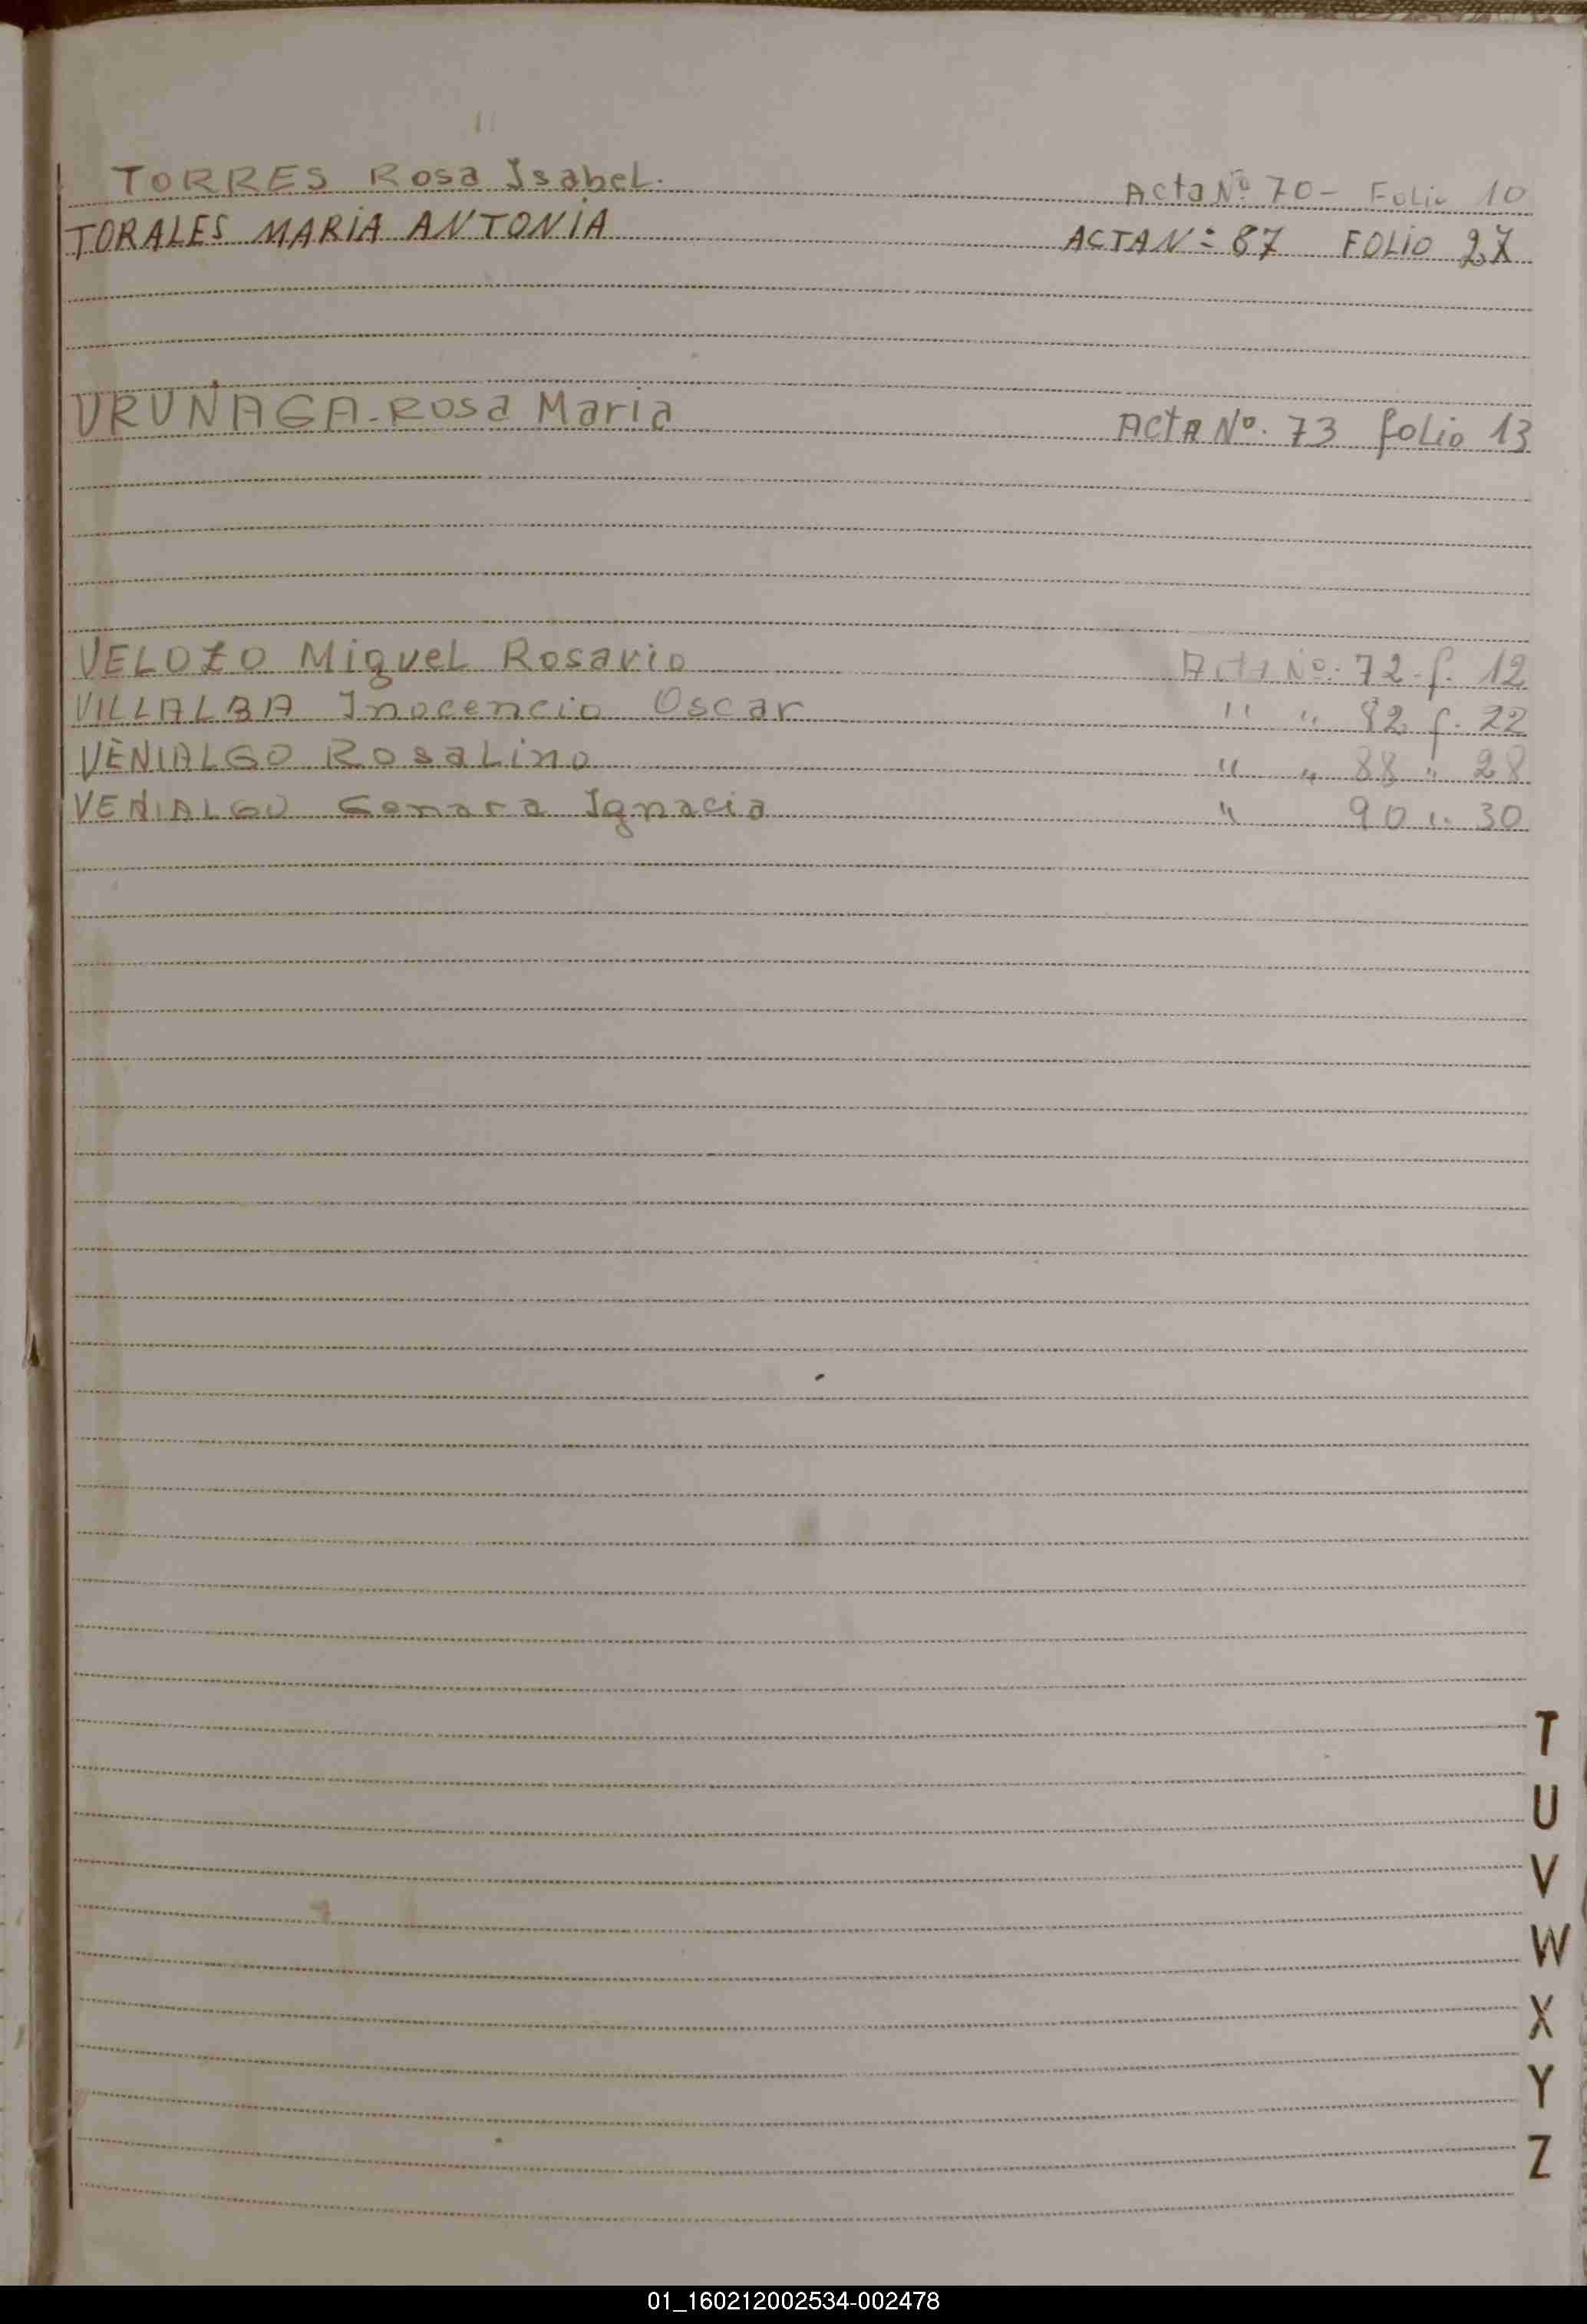 TORRES Rosa Isabel. Acta Nº 70 - Folio 10
TORALES MARIA ANTONIA ACTA N= 87 FOLIO 27
URUNAGA - Rosa Maria Acta Nº. 73 folio 13
VELOZO Miguel Rosario Acta Nº. 72 - f. 12
VILLALBA Inocencio Oscar " " 82 f. 22
VENIALGO Rosalino " " 88 " 28
VENIALGO Genara Ignacia " 90 " 30
T
U
V
W
X
Y
Z
01_160212002534-002478